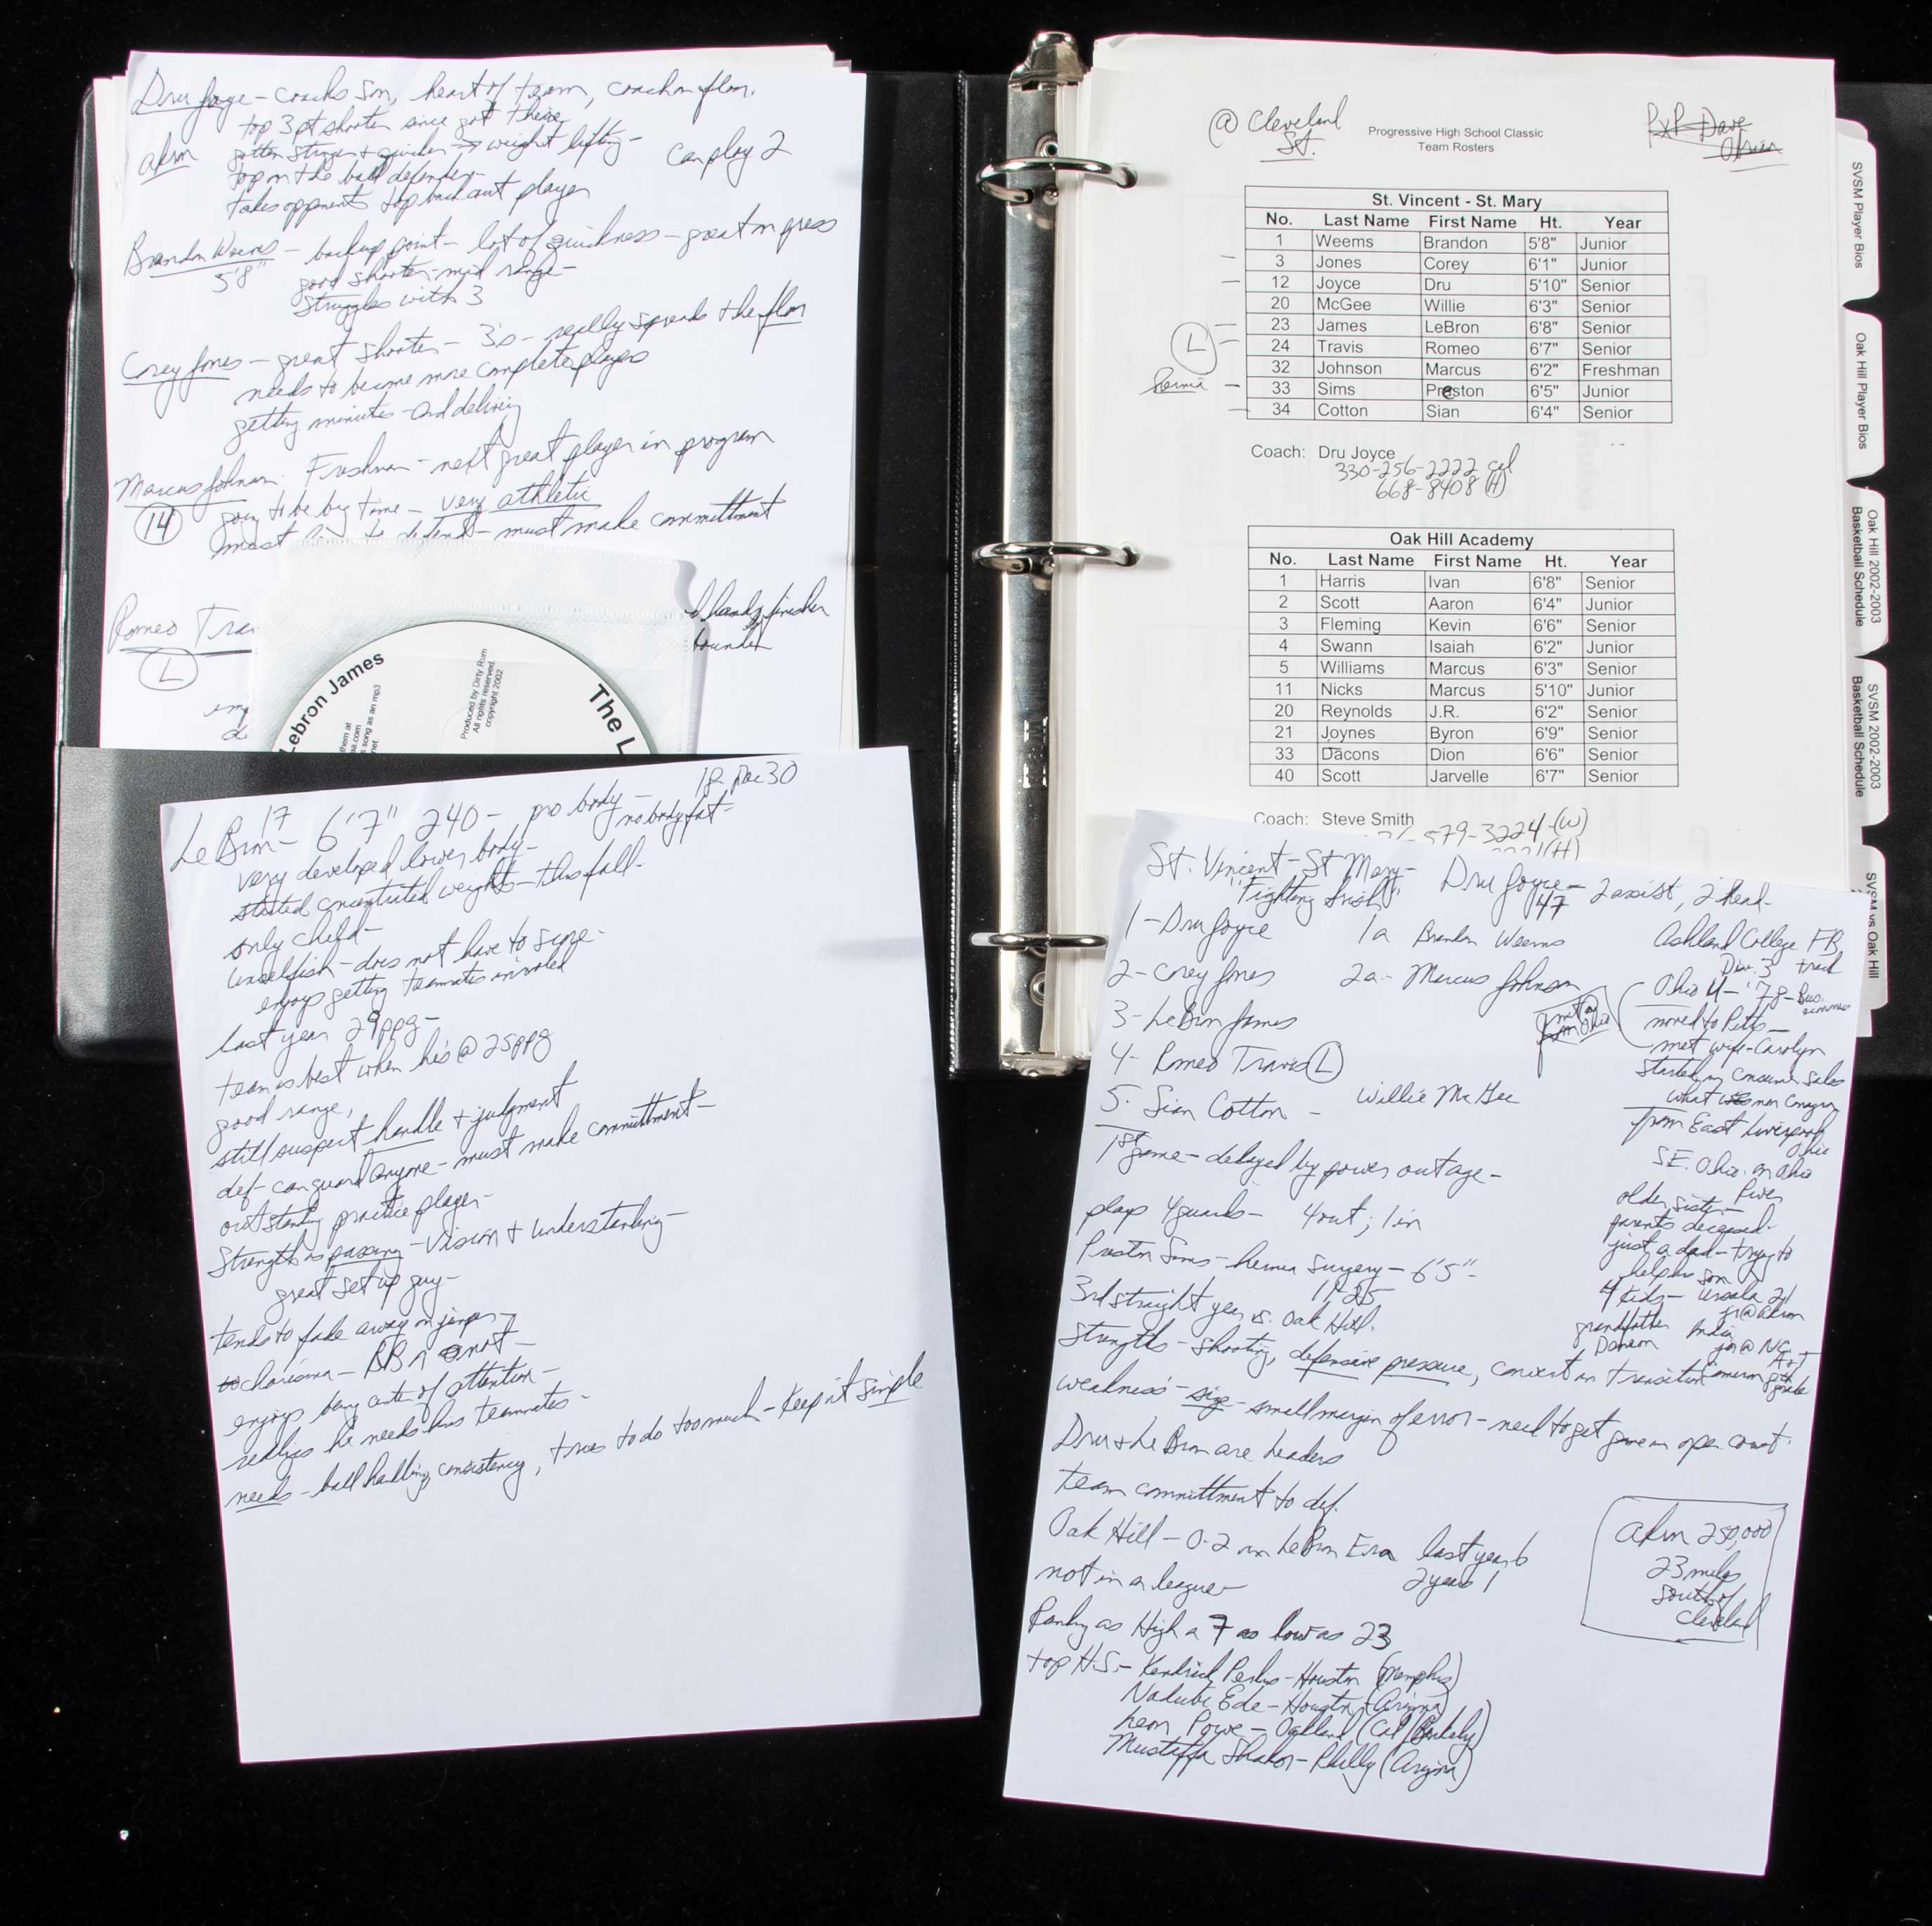 Dru Joyce – coachs son, heart of team, coach on floor.
top 3 pt shooter since got there
akron
gotten stronger + quicker → weight lifting –
can play 2
top on the ball defender –
takes opponents top back court player
Brandon Weems – backup point – lot of quickness – great on press
5'8"
good shooter – mid range –
struggles with 3
Corey Jones – great shooter – 3's – really spreads the floor
needs to become more complete player
getting minutes – and delivering
Marcus Johnson. Freshman – next great player in program
14
going to be big time – very athletic
must to defend – must make committment
Romeo Tra
hands, finisher
L
Lebron James
The L
Produced by Dirty Rum
All rights reserved
copyright 2002
song as an mp3
@ Cleveland
St.
Progressive High School Classic
Team Rosters
PxP – Dave
Obrien
St. Vincent - St. Mary
No. Last Name First Name Ht. Year
1 Weems Brandon 5'8" Junior
3 Jones Corey 6'1" Junior
12 Joyce Dru 5'10" Senior
20 McGee Willie 6'3" Senior
23 James LeBron 6'8" Senior
L
24 Travis Romeo 6'7" Senior
32 Johnson Marcus 6'2" Freshman
hernia
33 Sims Preston 6'5" Junior
34 Cotton Sian 6'4" Senior
Coach: Dru Joyce
330-256-2222 cel
668-8408 (H)
Oak Hill Academy
No. Last Name First Name Ht. Year
1 Harris Ivan 6'8" Senior
2 Scott Aaron 6'4" Junior
3 Fleming Kevin 6'6" Senior
4 Swann Isaiah 6'2" Junior
5 Williams Marcus 6'3" Senior
11 Nicks Marcus 5'10" Junior
20 Reynolds J.R. 6'2" Senior
21 Joynes Byron 6'9" Senior
33 Dacons Dion 6'6" Senior
40 Scott Jarvelle 6'7" Senior
Coach: Steve Smith
579-3224-(W)
(H)
SVSM Player Bios
Oak Hill Player Bios
Oak Hill 2002-2003
Basketball Schedule
SVSM 2002-2003
Basketball Schedule
SVSM vs Oak Hill
18 – Dec 30
17
LeBron – 6'7" 240 – pro body –
no body fat –
very developed lower body –
started concentrated weights – this fall –
only child –
unselfish – does not have to score –
enjoys getting teammates involved
last year 29ppg –
team is best when he's @ 25ppg
good range,
still suspect handle + judgment
def – can guard anyone – must make committment –
outstanding practice player –
Strength is passing – vision + understanding –
great set up guy –
tends to fade away on jumper –
charisma – BB or not –
enjoys being center of attention –
realizes he needs his teammates –
needs – ball handling, consistency, tries to do too much – keep it simple
St. Vincent – St Mary –
"Fighting Irish"
Dru Joyce – 2 assist, 2 head –
47
1 – Dru Joyce
1a Brandon Weems
2 – Corey Jones
2a – Marcus Johnson
3 – LeBron James
4 – Romeo Travis L
5. Sian Cotton – Willie McGee
Ashland College FB,
Div. 3 track
Ohio U – '78 – Bus.
moved to Pitts –
met wife – Carolyn
started in consumer sales
from East Liverpool
Ohio
SE. Ohio on Ohio
River
older sister –
parents deceased –
just a dad – trying to
help his son
4 kids – Ursala 21
jr @ akron
India
jr @ NC
A+T
grandfather
Deacon
Cameron 8th
grade
1st game – delayed by power outage –
plays 4 guards – 4 out; 1 in
Preston Sims – hernia surgery – 6'5" –
11/25
3rd straight year vs. Oak Hill.
strengths – shooting, defensive pressure, convert in transition
weakness' – size – small margin of error – need to get game in open court.
Dru + LeBron are leaders
team committment to def.
Oak Hill – 0-2 in LeBron Era last year 6
2 years 1
not in a league –
Ranking as High as 7 as low as 23
top H.S. – Kendrick Perkins – Houston (Memphis)
Nadubi Ede – Houston (Arizona)
Leon Powe – Oakland (Cal/Berkely)
Mustaffa Shakor – Philly (Arizona)
akron 250,000
23 miles
south of
Cleveland